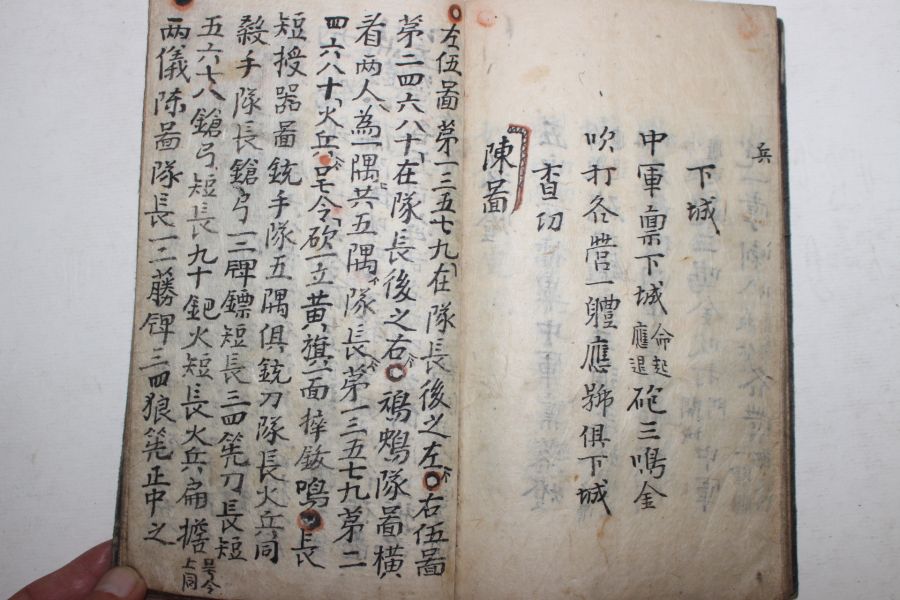 兵
下城
中軍稟下城命起應退砲三鳴金
吹打各營一軆應號俱下城
查功
陳圖
左伍圖第一三五七九在隊長後之左○右伍圖
第二四六八十在隊長後之右○鴉隊圖橫
看兩人為一隅共五隅隊長第一三五七九第二
四六八十火兵○号令砍一立黃旗一面摔鈸鳴○長
短授器圖銃手隊五隅俱銃刀隊長火兵同
殺手隊長鎗弓一二牌鏢短長三四筅刀長短
五六七八鎗弓短長九十鈀火短長火兵扁擔号令上同
兩儀陈圖隊長一二藤牌三四狼筅正中之